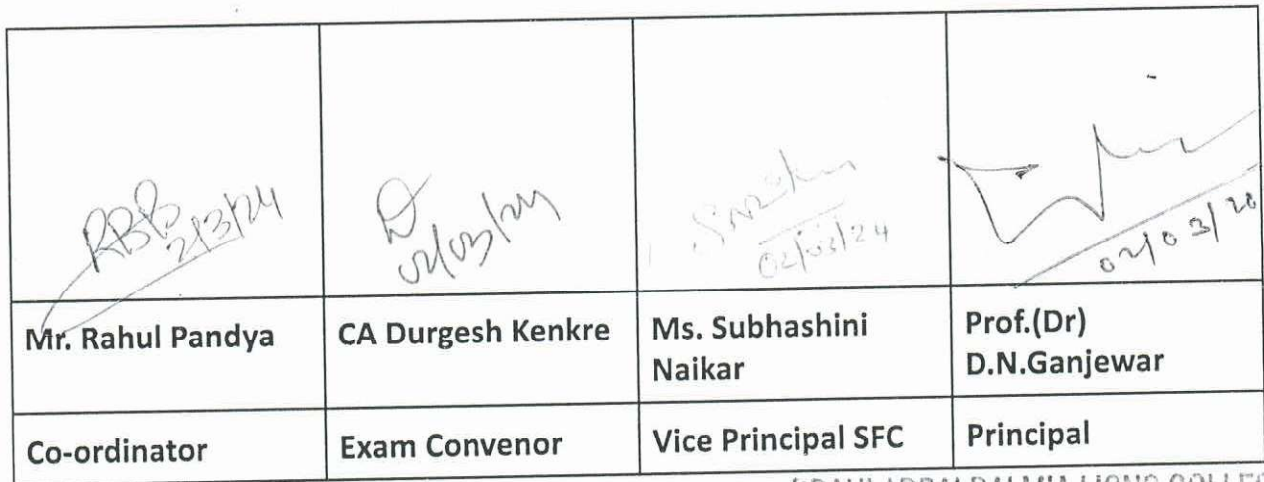 RBB
2/3/24
02/03/24
02/03/24
02/03/20
Mr. Rahul Pandya
CA Durgesh Kenkre
Ms. Subhashini
Naikar
Prof.(Dr)
D.N.Ganjewar
Co-ordinator
Exam Convenor
Vice Principal SFC
Principal
DALMIA LIONS COLLEG